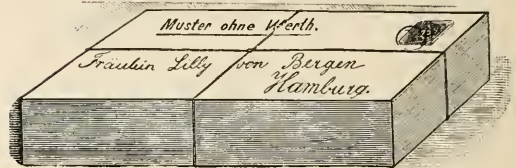 Muster ohne Werth.
Fräulein Lilly von Bergen
Hamburg.